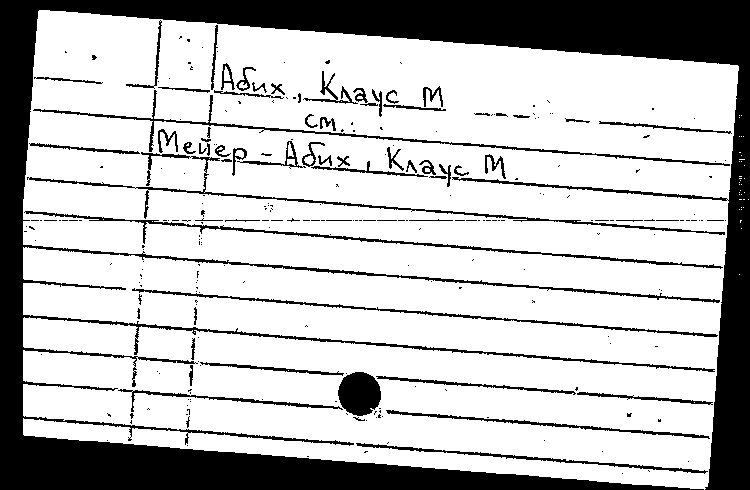 Абих, Клаус М
см.:
Мейер - Абих, Клаус М.